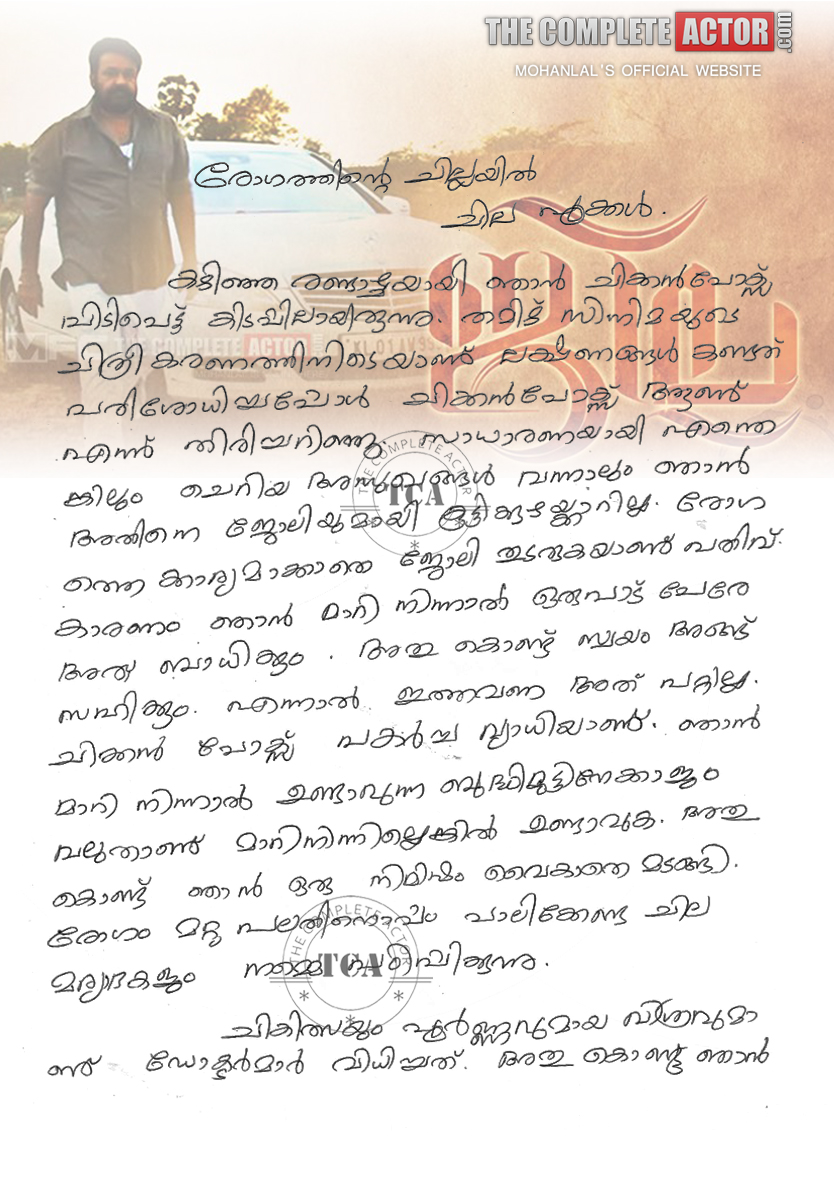 THE COMPLETE ACTOR.com
MOHANLAL'S OFFICIAL WEBSITE
രോഗത്തിന്റെ ചില്ലയിൽ
ചില പൂക്കൾ.
കഴിഞ്ഞ രണ്ടാഴ്ചയായി ഞാൻ ചിക്കൻപോക്സ്
പിടിപെട്ട് കിടപ്പിലായിരുന്നു. തമിഴ് സിനിമയുടെ
ചിത്രീകരണത്തിനിടെയാണ് ലക്ഷണങ്ങൾ കണ്ടത്
പരിശോധിച്ചപ്പോൾ ചിക്കൻപോക്സ് ആണ്
എന്ന് തിരിച്ചറിഞ്ഞു. സാധാരണയായി എന്തെ
ങ്കിലും ചെറിയ അസുഖങ്ങൾ വന്നാലും ഞാൻ
അതിനെ ജോലിയുമായി കൂട്ടിക്കുഴയ്ക്കാറില്ല. രോഗ
ത്തെ കാര്യമാക്കാതെ ജോലി തുടരുകയാണ് പതിവ്.
കാരണം ഞാൻ മാറി നിന്നാൽ ഒരുപാട് പേരേ
അതു ബാധിക്കും. അതു കൊണ്ട് സ്വയം അങ്ങ്
സഹിക്കും. എന്നാൽ ഇത്തവണ അത് പറ്റില്ല.
ചിക്കൻ പോക്സ് പകർച്ച വ്യാധിയാണ്. ഞാൻ
മാറി നിന്നാൽ ഉണ്ടാവുന്ന ബുദ്ധിമുട്ടിനേക്കാളും
വലുതാണ് മാറിനിന്നില്ലെങ്കിൽ ഉണ്ടാവുക. അതു
കൊണ്ട് ഞാൻ ഒരു നിമിഷം വൈകാതെ മടങ്ങി.
രോഗം മറ്റു പലതിനൊപ്പം പാലിക്കേണ്ട ചില
മര്യാദകളും നമ്മെ പഠിപ്പിക്കുന്നു.
ചികിത്സയും പൂർണ്ണവുമായ വിശ്രവുമാ
ണ് ഡോക്ടർമാർ വിധിച്ചത്. അതു കൊണ്ട് ഞാൻ
THE COMPLETE ACTOR
TCA
THE COMPLETE ACTOR
TCA